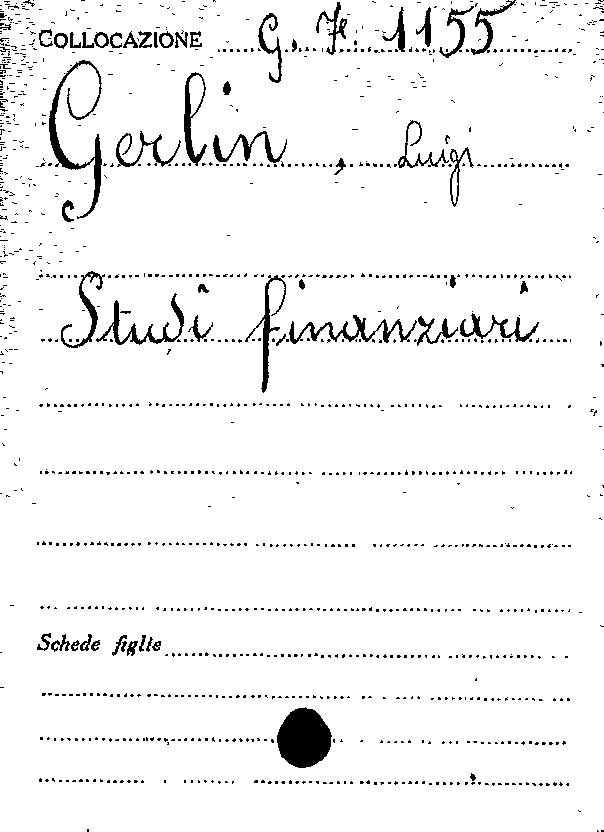 COLLOCAZIONE G. Fe. 1155
Gerlin, Luigi
Studi finanziari
Schede figlie